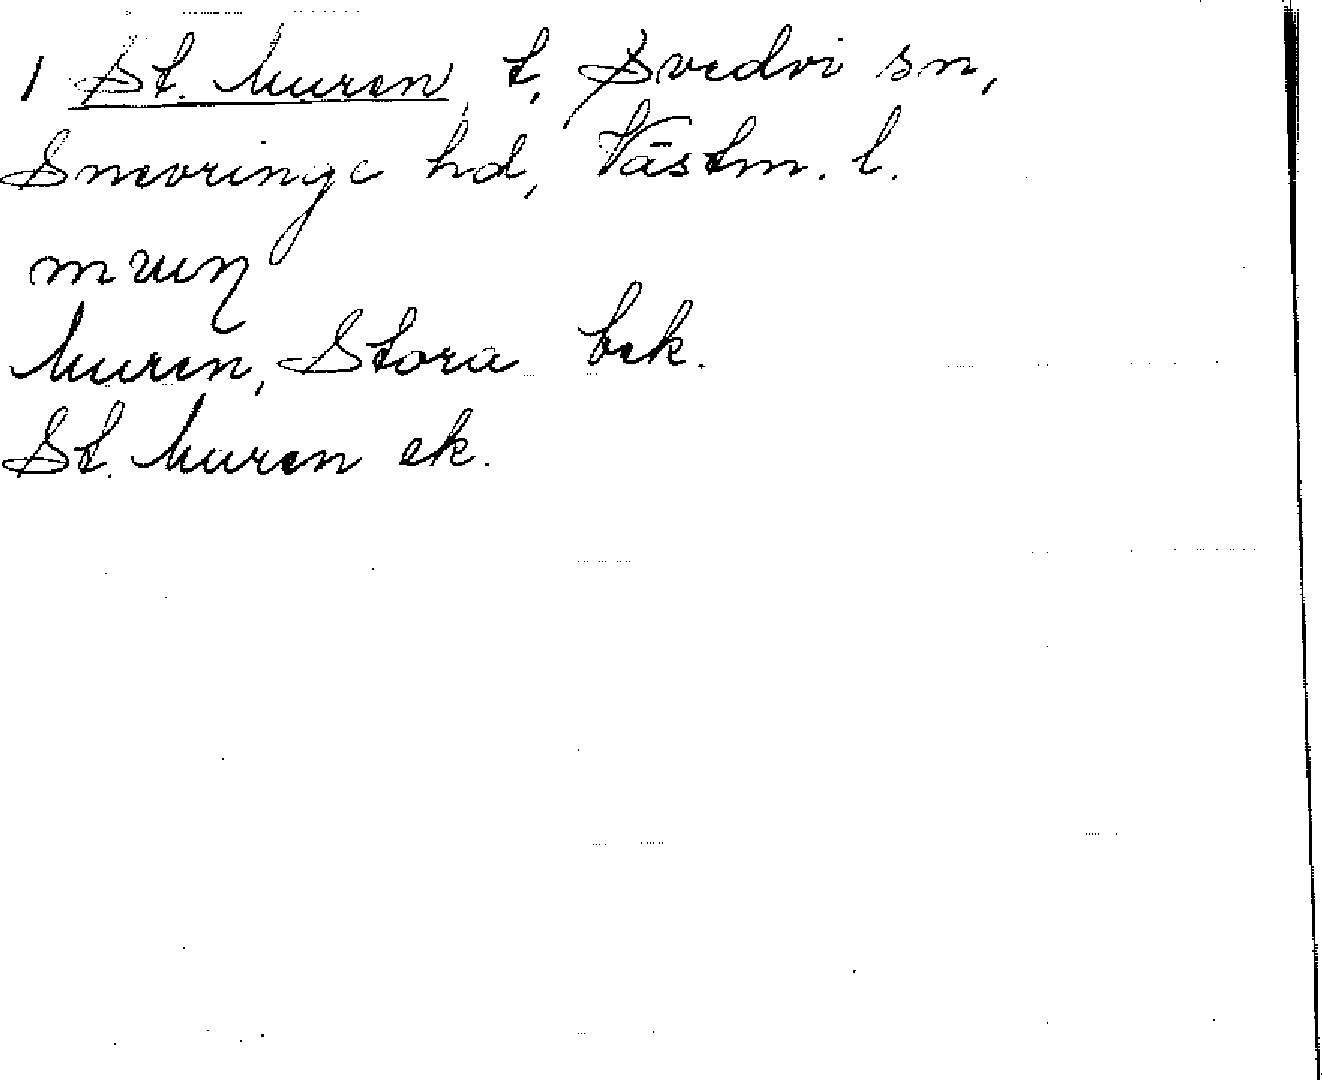 1 St. Muren, t, Svedvi sn,
Snevringe hd, Västm. l.
Muren, Stora bek.
St. Muren ek.